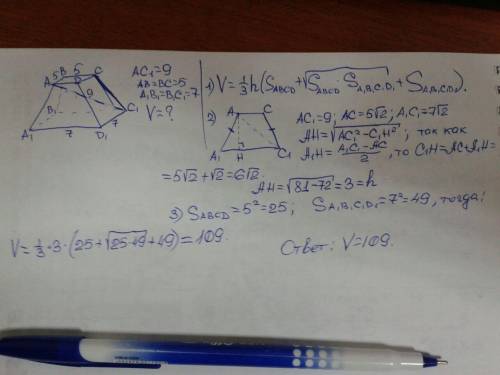 5 B 5 C
A D
9
B₁ C₁
7
A₁ 7 D₁
AC₁=9
AB=BC=5
A₁B₁=B₁C₁=7
V=?
1) V=⅓h(S_ABCD+√(S_ABCD·S_A₁B₁C₁D₁)+S_A₁B₁C₁D₁).
2) A C
A₁ H C₁
AC₁=9; AC=5√2; A₁C₁=7√2
AH=√(AC₁²-C₁H²); так как
A₁H=(A₁C₁-AC)/2, то C₁H=AC+A₁H=
=5√2+√2=6√2.
AH=√(81-72)=3=h
3) S_ABCD=5²=25; S_A₁B₁C₁D₁=7²=49, тогда:
V=⅓·3·(25+√(25·49)+49)=109.
Ответ: V=109.